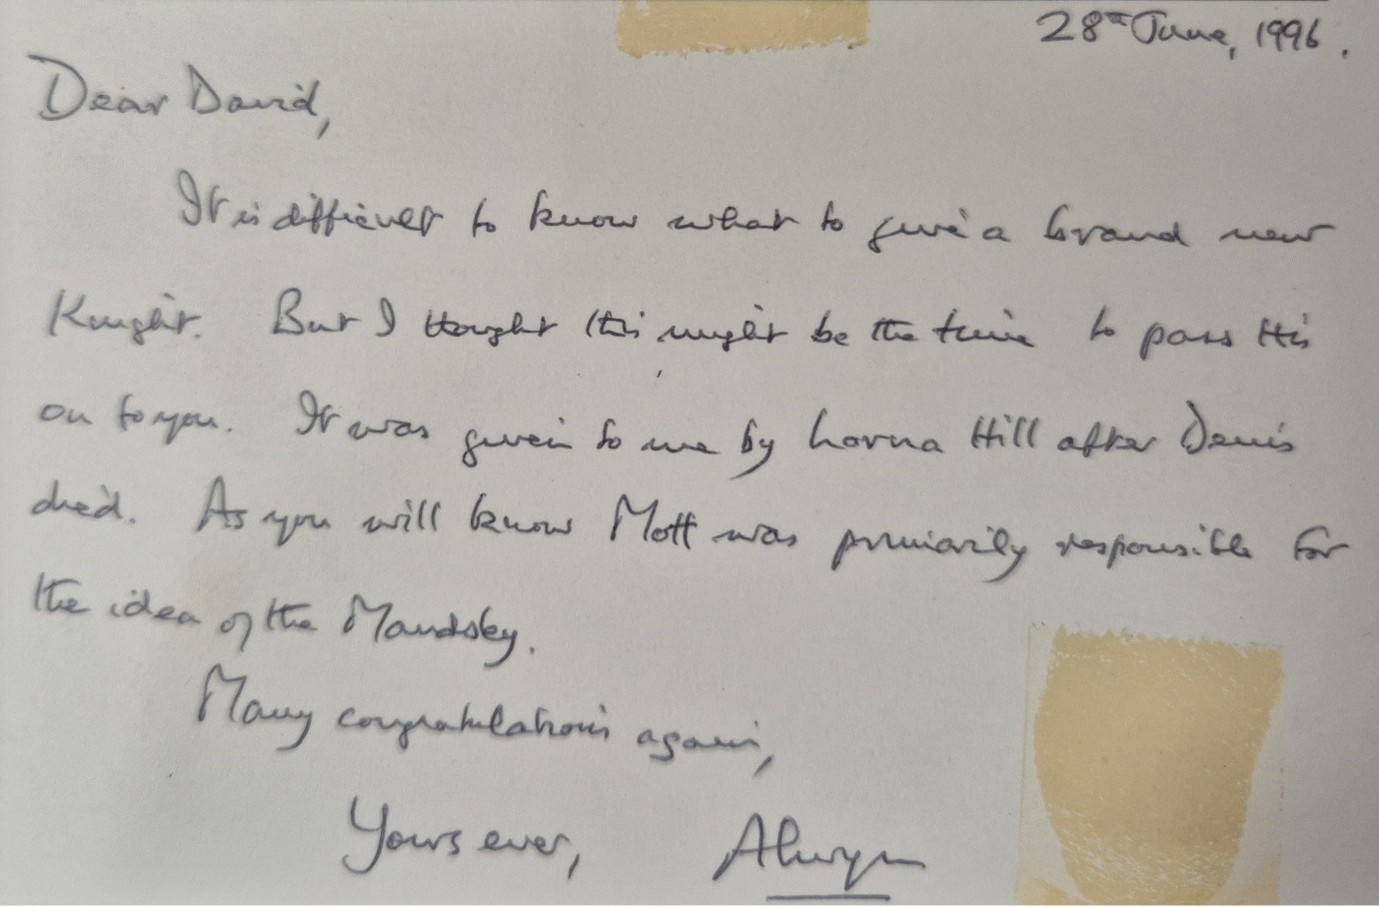 28th June, 1996.
Dear David,
It is difficult to know what to give a brand new
Knight. But I thought this might be the time to pass this
on to you. It was given to me by Lorna Hill after Denis
died. As you will know Mott was primarily responsible for
the idea of the Maudsley.
Many congratulations again,
Yours ever, Alwyn